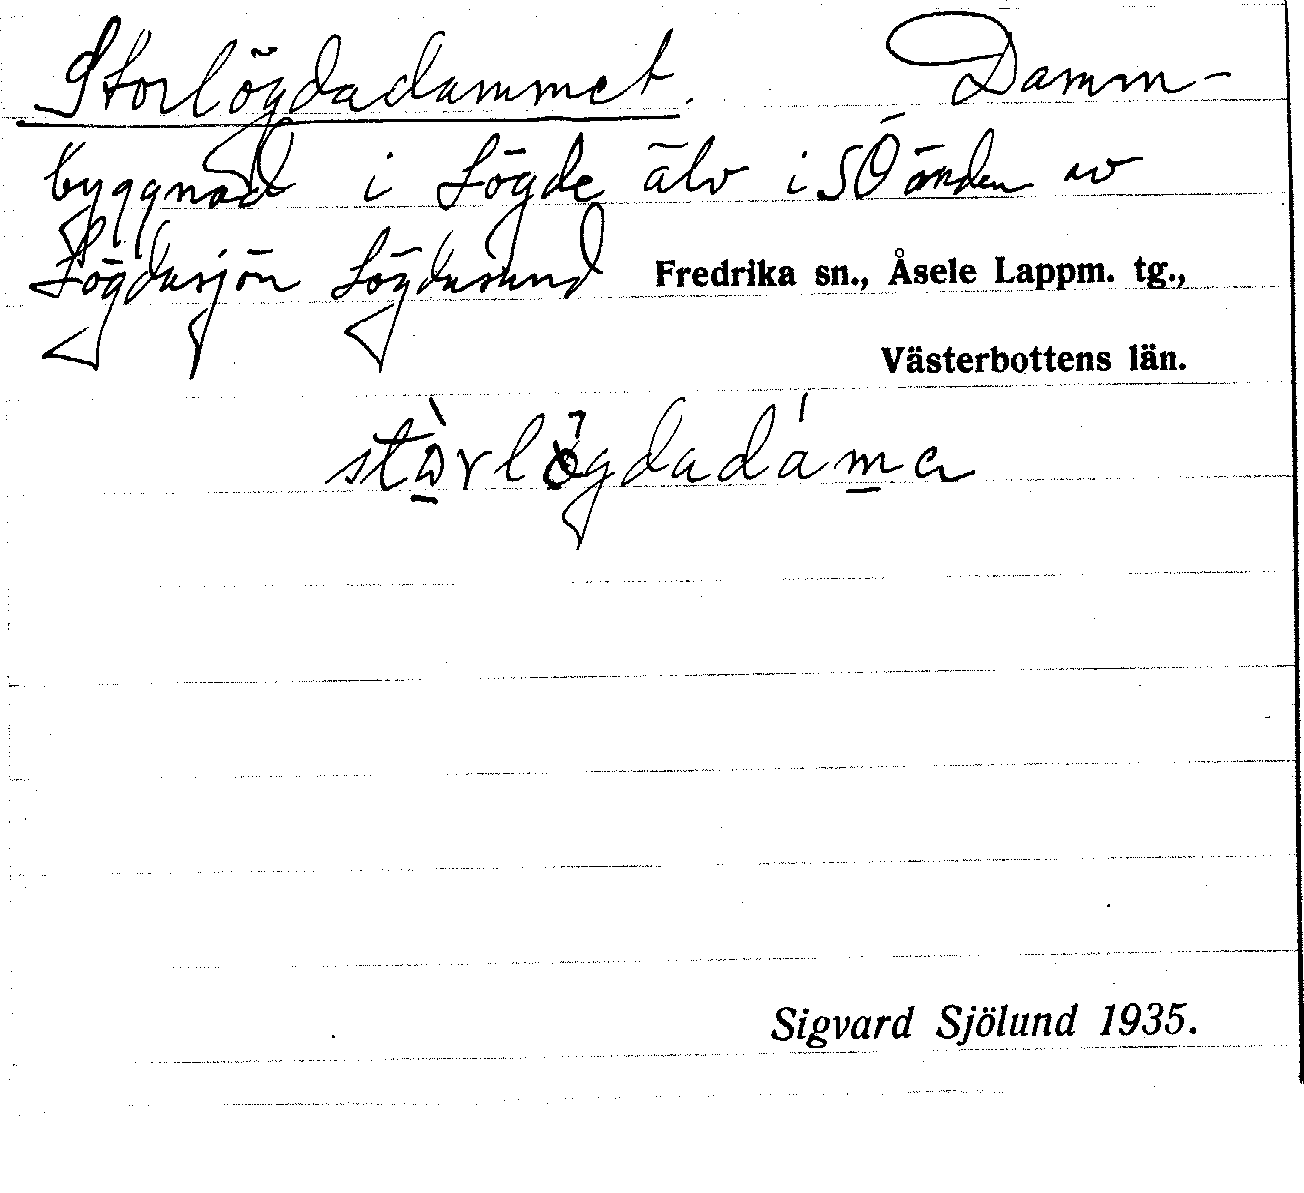 Storlögdadammet. Damm-
byggnad i Lögde älv i SÖ änden av
Lögdasjön Lögdasund Fredrika sn., Åsele Lappm. tg.,
Västerbottens län.
stòrlögdadáma
Sigvard Sjölund 1935.